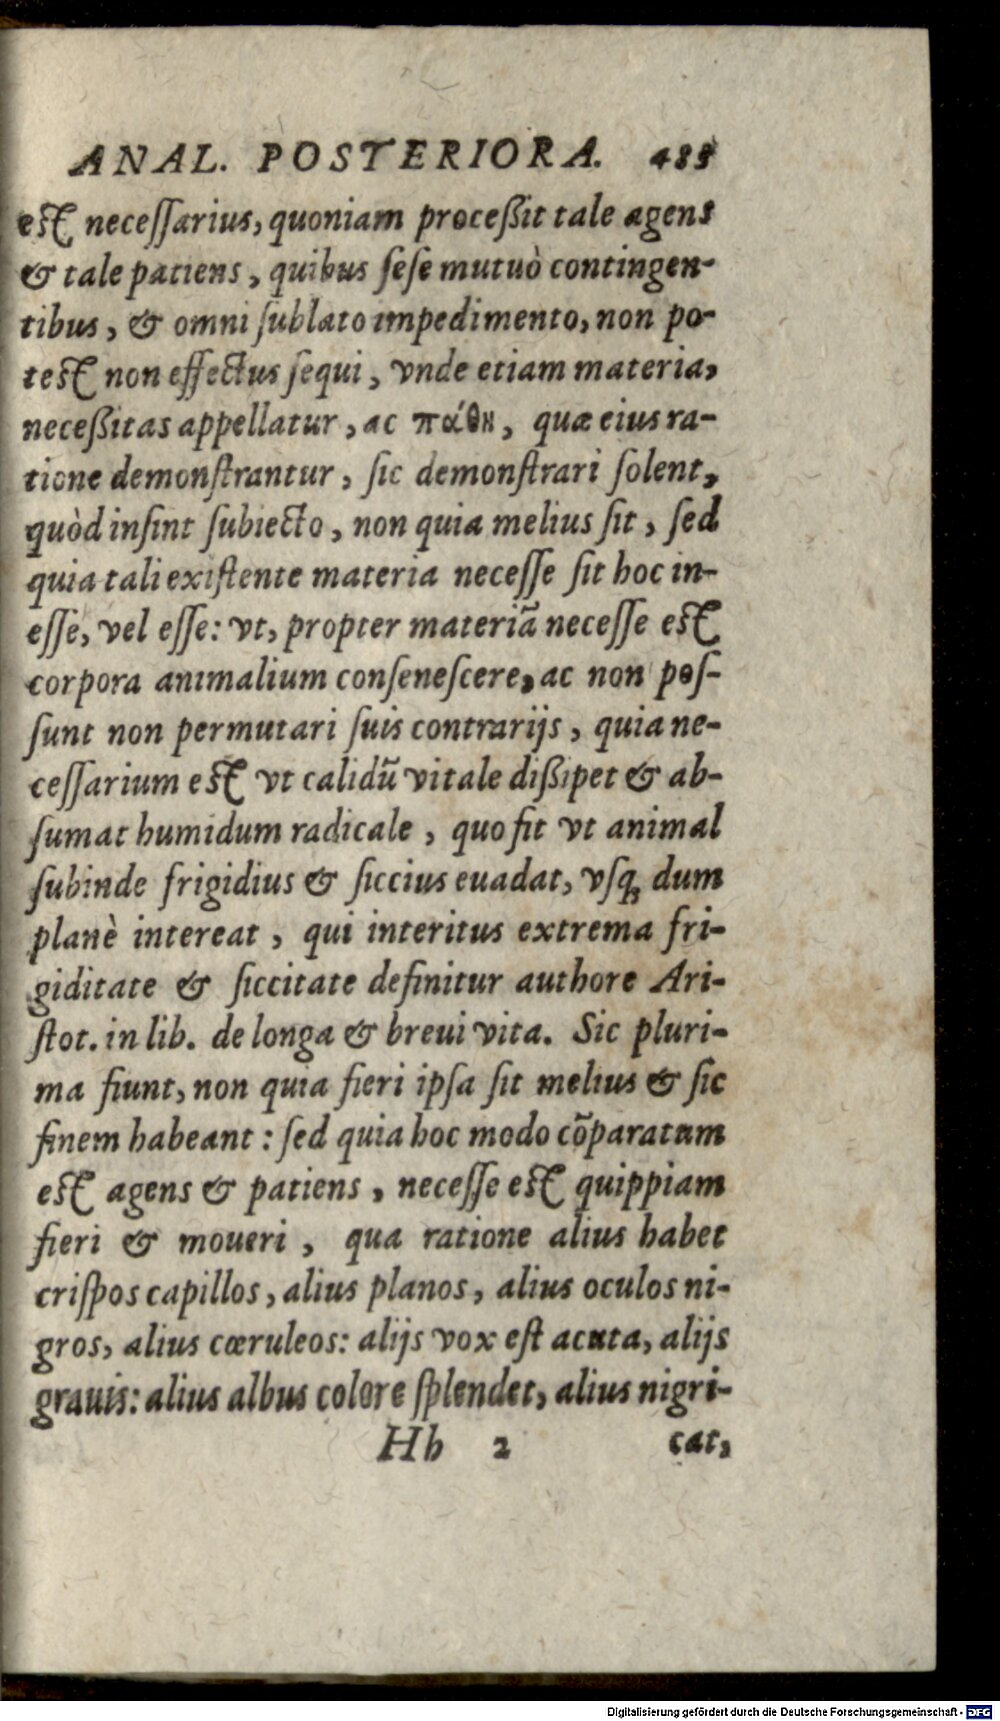 ANAL. POSTERIORA. 485
est necessarius, quoniam processit tale agens
& tale patiens, quibus sese mutuò contingen-
tibus, & omni sublato impedimento, non po-
test non effectus sequi, vnde etiam materia,
necessitas appellatur, ac πάθη, quæ eius ra-
tione demonstrantur, sic demonstrari solent,
quòd insint subiecto, non quia melius sit, sed
quia tali existente materia necesse sit hoc in-
esse, vel esse: vt, propter materiã necesse est
corpora animalium consenescere, ac non pos-
sunt non permutari suis contrarijs, quia ne-
cessarium est vt calidũ vitale dissipet & ab-
sumat humidum radicale, quo fit vt animal
subinde frigidius & siccius euadat, vsq; dum
planè intereat, qui interitus extrema fri-
giditate & siccitate definitur authore Ari-
stot. in lib. de longa & breui vita. Sic pluri-
ma fiunt, non quia fieri ipsa sit melius & sic
finem habeant: sed quia hoc modo cõparatum
est agens & patiens, necesse est quippiam
fieri & moueri, qua ratione alius habet
crispos capillos, alius planos, alius oculos ni-
gros, alius cœruleos: alijs vox est acuta, alijs
grauis: alius albus colore splendet, alius nigri-
Hh 2 cat,
Digitalisierung gefördert durch die Deutsche Forschungsgemeinschaft - DFG